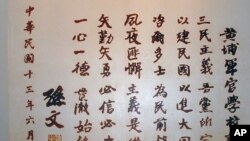 黃埔軍官學校
三民主義吾黨宗
以建民國以進大同
咨爾多士為民前鋒
夙夜匪懈主義是從
矢勤矢勇必信必忠
一心一德貫徹始終
孫文
中華民國十三年六月
AP